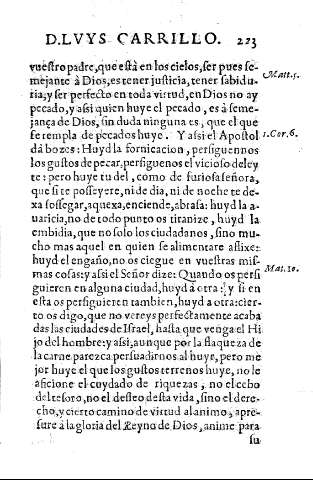 D. LVYS CARRILLO. 223
vuestro padre, que està en los cielos, ser pues se-
mejante à Dios, es tener justicia, tener sabidu-
ria, y ser perfecto en toda virtud, en Dios no ay
pecado, y assi quien huye el pecado, es à seme-
jança de Dios, sin duda ninguna es, que el que
se templa de pecados huye. Y assi el Apostol
dà bozes: Huyd la fornicacion, persiguennos
los gustos de pecar, persiguenos el vicioso deley
te: pero huye tu del, como de furiosa señora,
que si te posseyere, ni de dia, ni de noche te de-
xa sossegar, aquexa, enciende, abrasa: huyd la a-
uaricia, no de todo punto os titanize, huyd la
embidia, que no solo los ciudadanos, sino mu-
cho mas aquel en quien se alimentare aflixe:
huyd el engaño, no os ciegue en vuestras mis-
mas cosas: y assi el Señor dize: Quando os persi
guieren en alguna ciudad, huyd à otra: y si en
esta os persiguieren tambien, huyd a otra: cier-
to os digo, que no vereys perfectamente acaba
das las ciudades de Israel, hasta que venga el Hi
jo del hombre: y assi, aunque por la flaqueza de
la carne parezca persuadirnos al huyr, pero me
jor huye el que los gustos terrenos huye, no le
aficione el cuydado de riquezas, no el cebo
del tesoro, no el desseo desta vida, sino el dere-
cho, y cierto camino de virtud al animo, apre-
sure à la gloria del Reyno de Dios, anime para
su
Matt. 5.
1. Cor. 6.
Mat. 10.